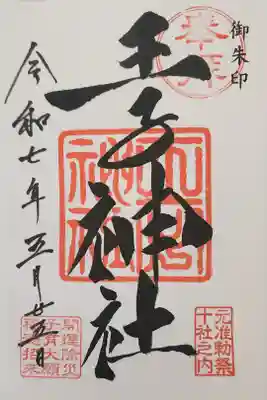 御朱印
奉拝
王子神社
元准勅祭
十社之内
令和七年五月廿五日
開運除災